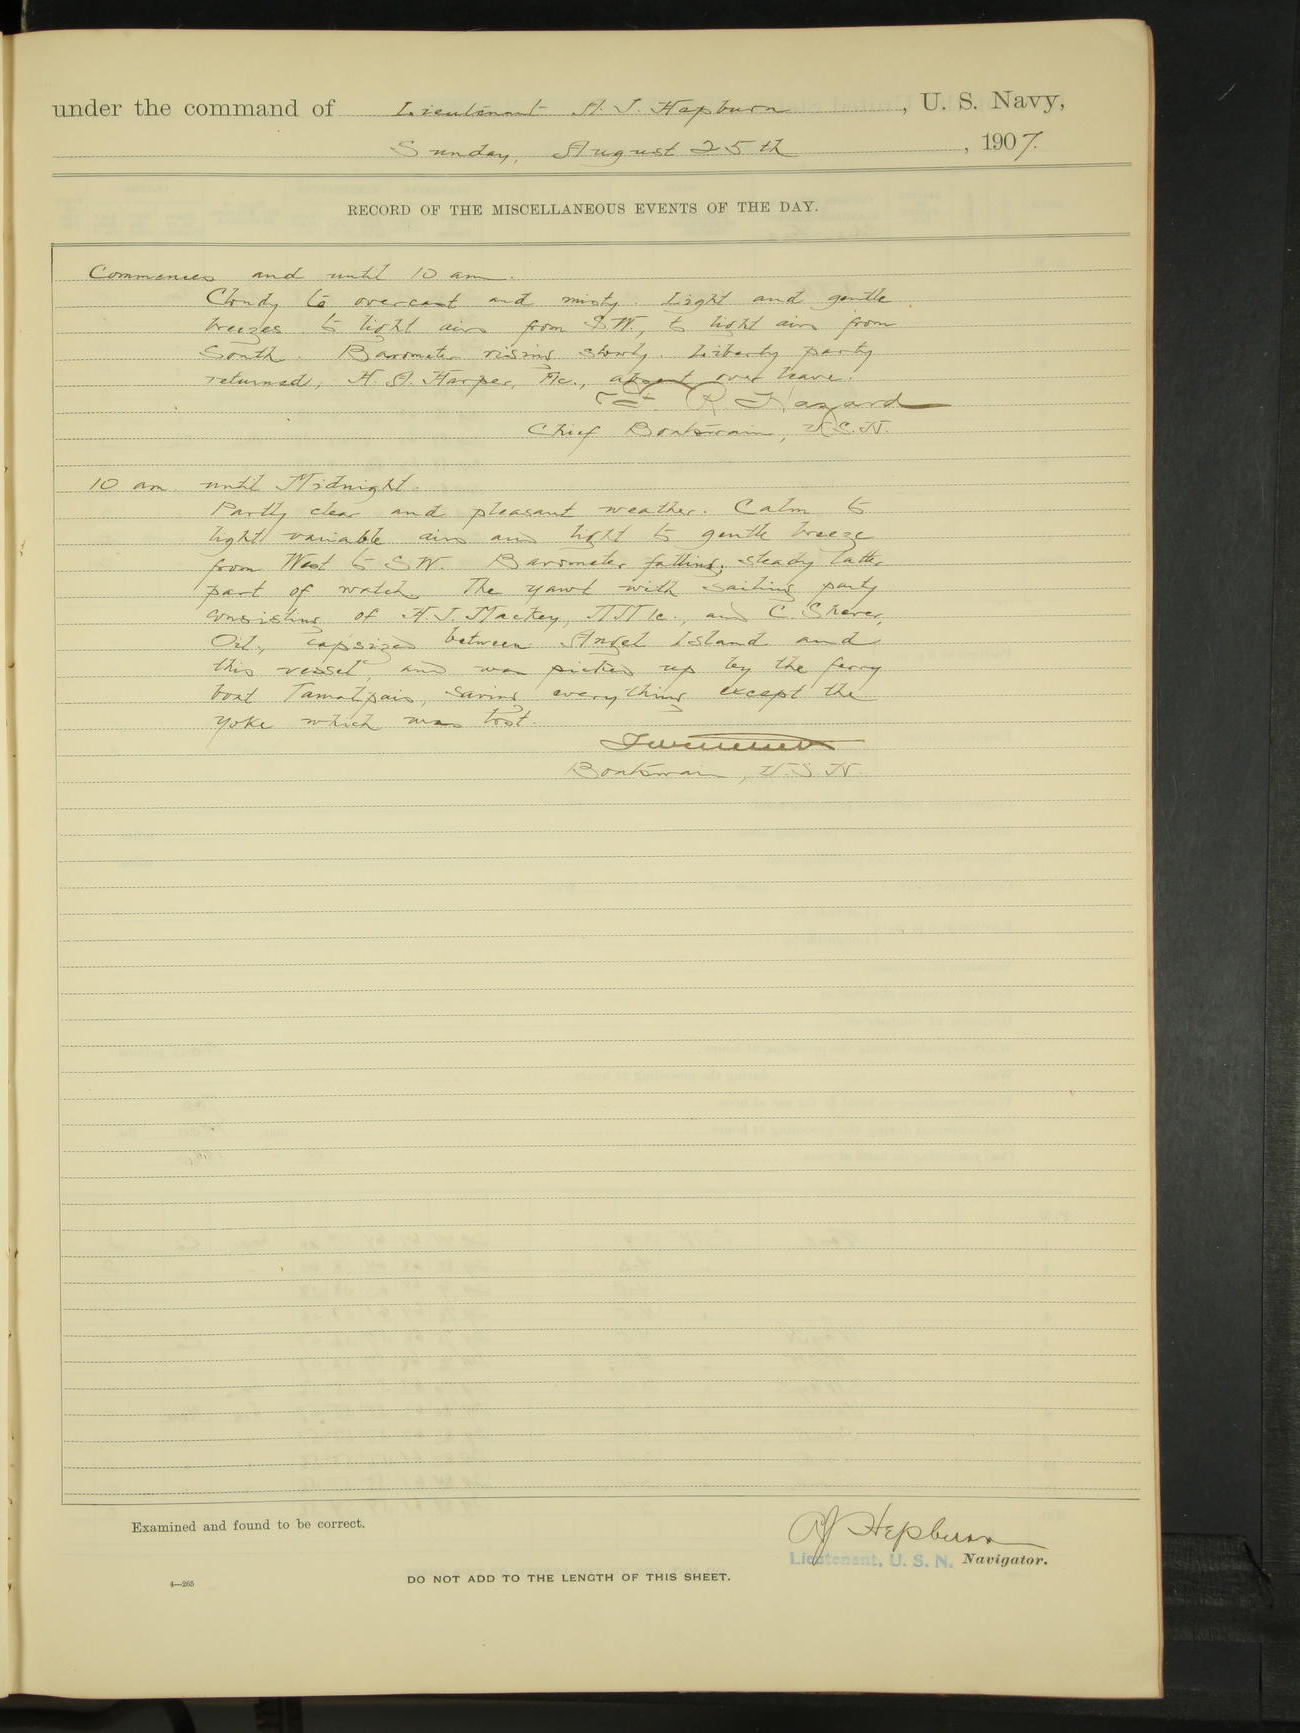 under the command of Lieutenant A. J. Hepburn, U. S. Navy,
Sunday, August 25th, 1907.
RECORD OF THE MISCELLANEOUS EVENTS OF THE DAY.
Commences and until 10 am.
Cloudy to overcast and misty. Light and gentle
breezes to light airs from SW, to light airs from
South. Barometer rising slowly. Liberty party
returned, H. A. Harper, absent over leave.
R. Hazard
Chief Boatswain, U.S.N.
10 am. until Midnight.
Partly clear and pleasant weather. Calm to
light variable airs and light to gentle breeze
from West to SW. Barometer falling, steady latter
part of watch. The yawl with sailing party
consisting of H. J. Mackey, MM1c., and C. Sherer,
Oil., capsized between Angel Island and
this vessel, and was picked up by the ferry
boat Tamalpais, saving everything except the
yoke which was lost.
Boatswain, U.S.N.
Examined and found to be correct.
AJ Hepburn
Lieutenant, U. S. N. Navigator.
4—265
DO NOT ADD TO THE LENGTH OF THIS SHEET.